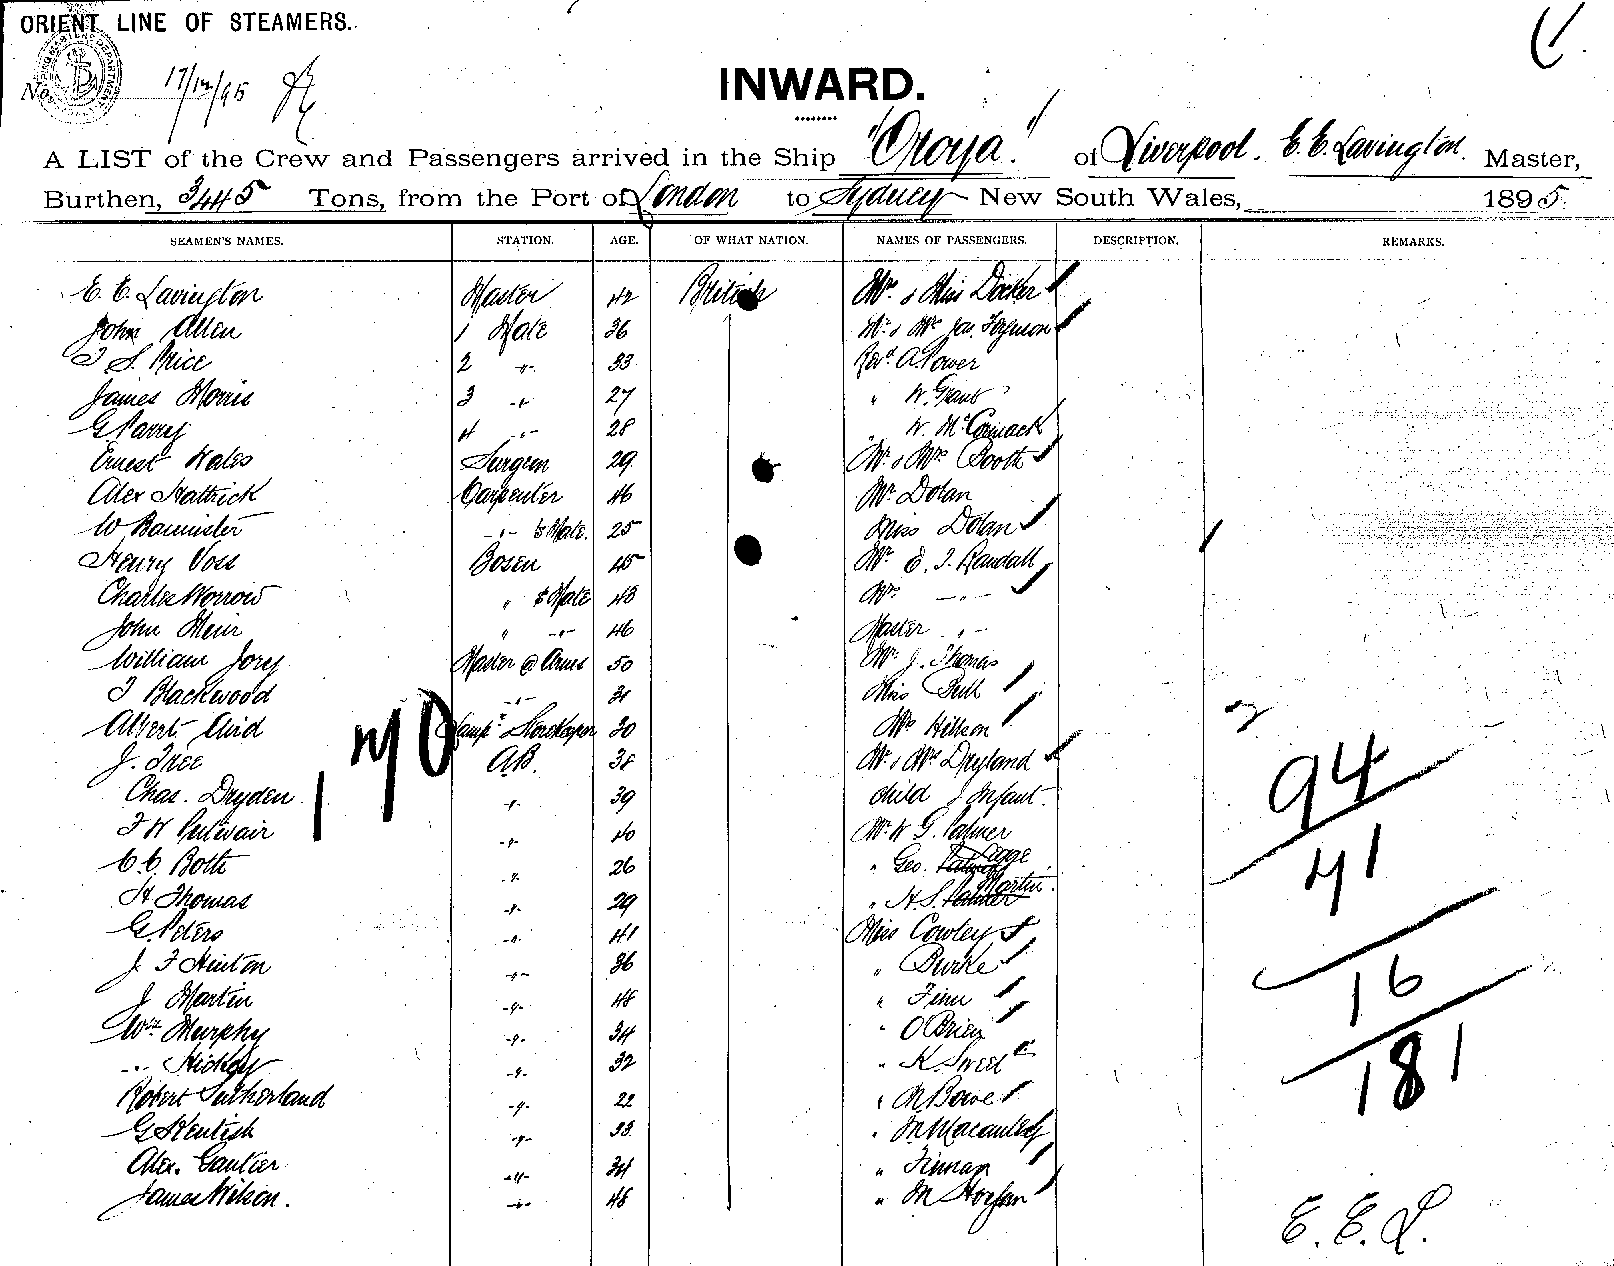 ORIENT LINE OF STEAMERS.
No. 17/12/95
INWARD.
A LIST of the Crew and Passengers arrived in the Ship "Oroya" of Liverpool. E. E. Lavington. Master,
Burthen, 3445 Tons, from the Port of London to Sydney New South Wales, 1895.
SEAMEN'S NAMES. STATION. AGE. OF WHAT NATION. NAMES OF PASSENGERS. DESCRIPTION. REMARKS.
E. E. Lavington Master 42 British Mr. & Miss Docker
John Allen 1 Mate 36 Mr. & Mrs Jas. Ferguson
T S. Price 2 -"- 33 Revd. A. Power
James Morris 3 -"- 27 " W. Grant
G Parry 4 -"- 28 " W. McCormack
Ernest Hales Surgeon 29 Mr. & Mrs Booth
Alex Hattrick Carpenter 46 Mr. Dolan
W Bannister -"- s Mate. 25 Miss Dolan
Henry Voss Bosen 45 Mr E. J. Randall
Charles Worrow " s Mate 43 Mrs -"-
John Meir " -"- 46 Master -"-
William Jory Master @ Arms 50 Mr J. Thomas
T Blackwood -"- 31 Miss Bull
Albert Avid Lamps Storekeeper 30 Mrs
J. Tree A.B. 38 Mr. & Mrs Dryland
Chas. Dryden -"- 39 child & Infant.
F W -"- 40 Mr. W G. Palmer
C. C. Bolt -"- 26 " Geo. Legge
H Thomas -"- 29 " H. S. Martin.
G. Peters -"- 41 Miss Cowley
J. F Hinton -"- 36 " Burke
J Martin -"- 48 " Finn
Wm Murphy -"- 34 " O'Brien
-"- Hickey -"- 32 " K. Sweet
Robert Sutherland -"- 22 " M Bowe
G Kentish -"- 33 " M Macauley
Alex. Gautier -"- 34 " Finnan
James Wilson. -"- 48 " M Horgan
170
94
41
16
181
E. E. L.